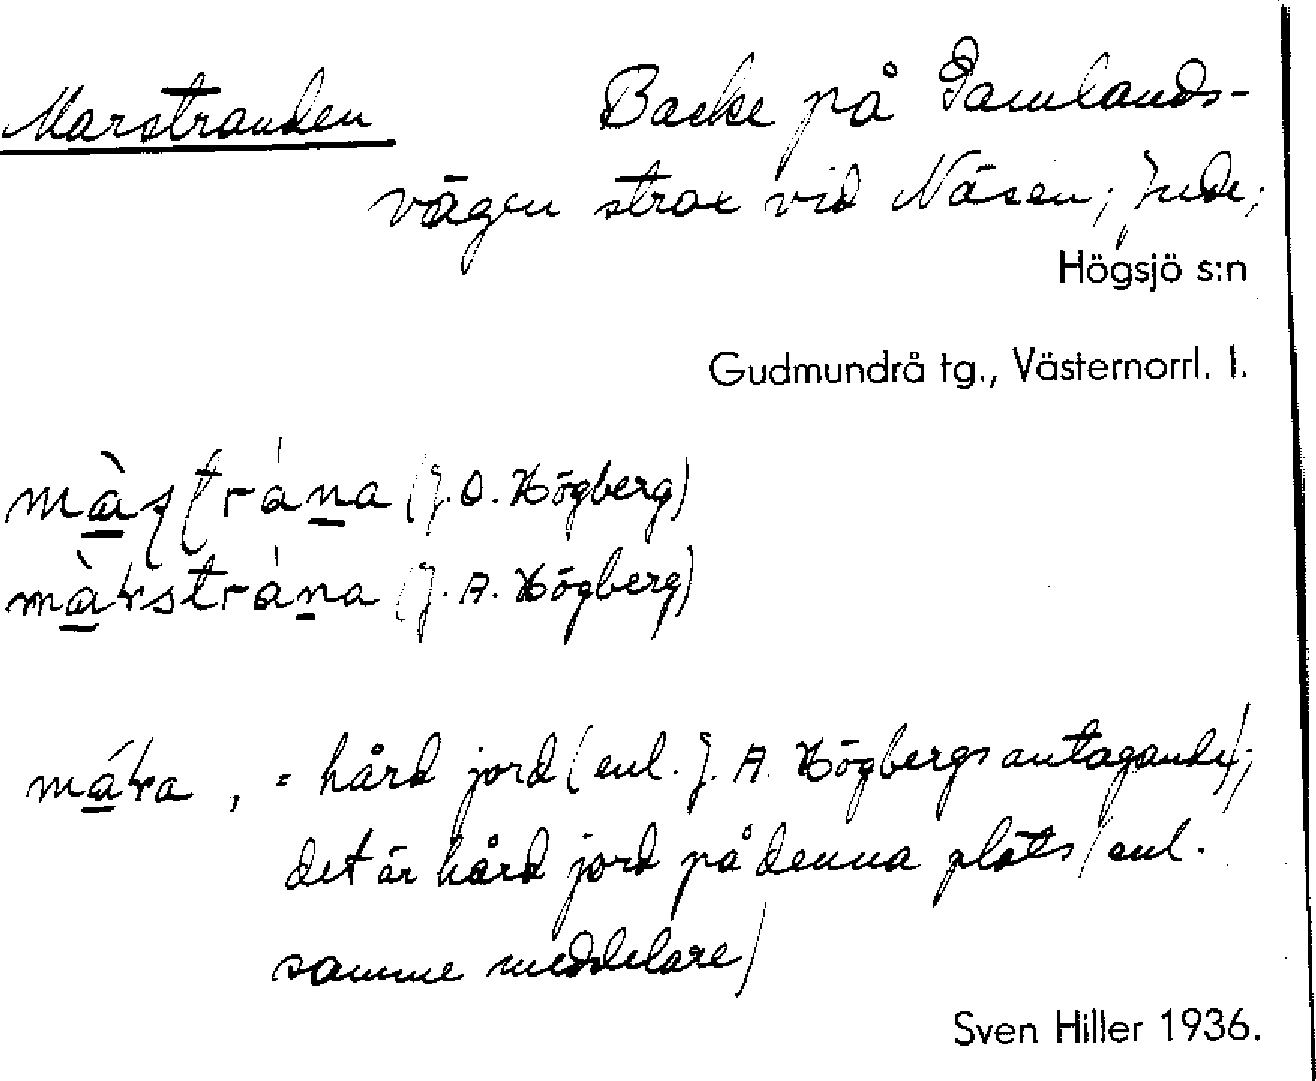 Marstranden Backe på Gamlands-
vägen strax vid Näsen; Jude;
Högsjö s:n
Gudmundrå tg., Västernorrl. l.
(J. O. Högberg)
(J. A. Högberg)
, = hård jord (enl. J. A. Högbergs antagande);
det är hård jord på denna plats (enl.
samme meddelare)
Sven Hiller 1936.